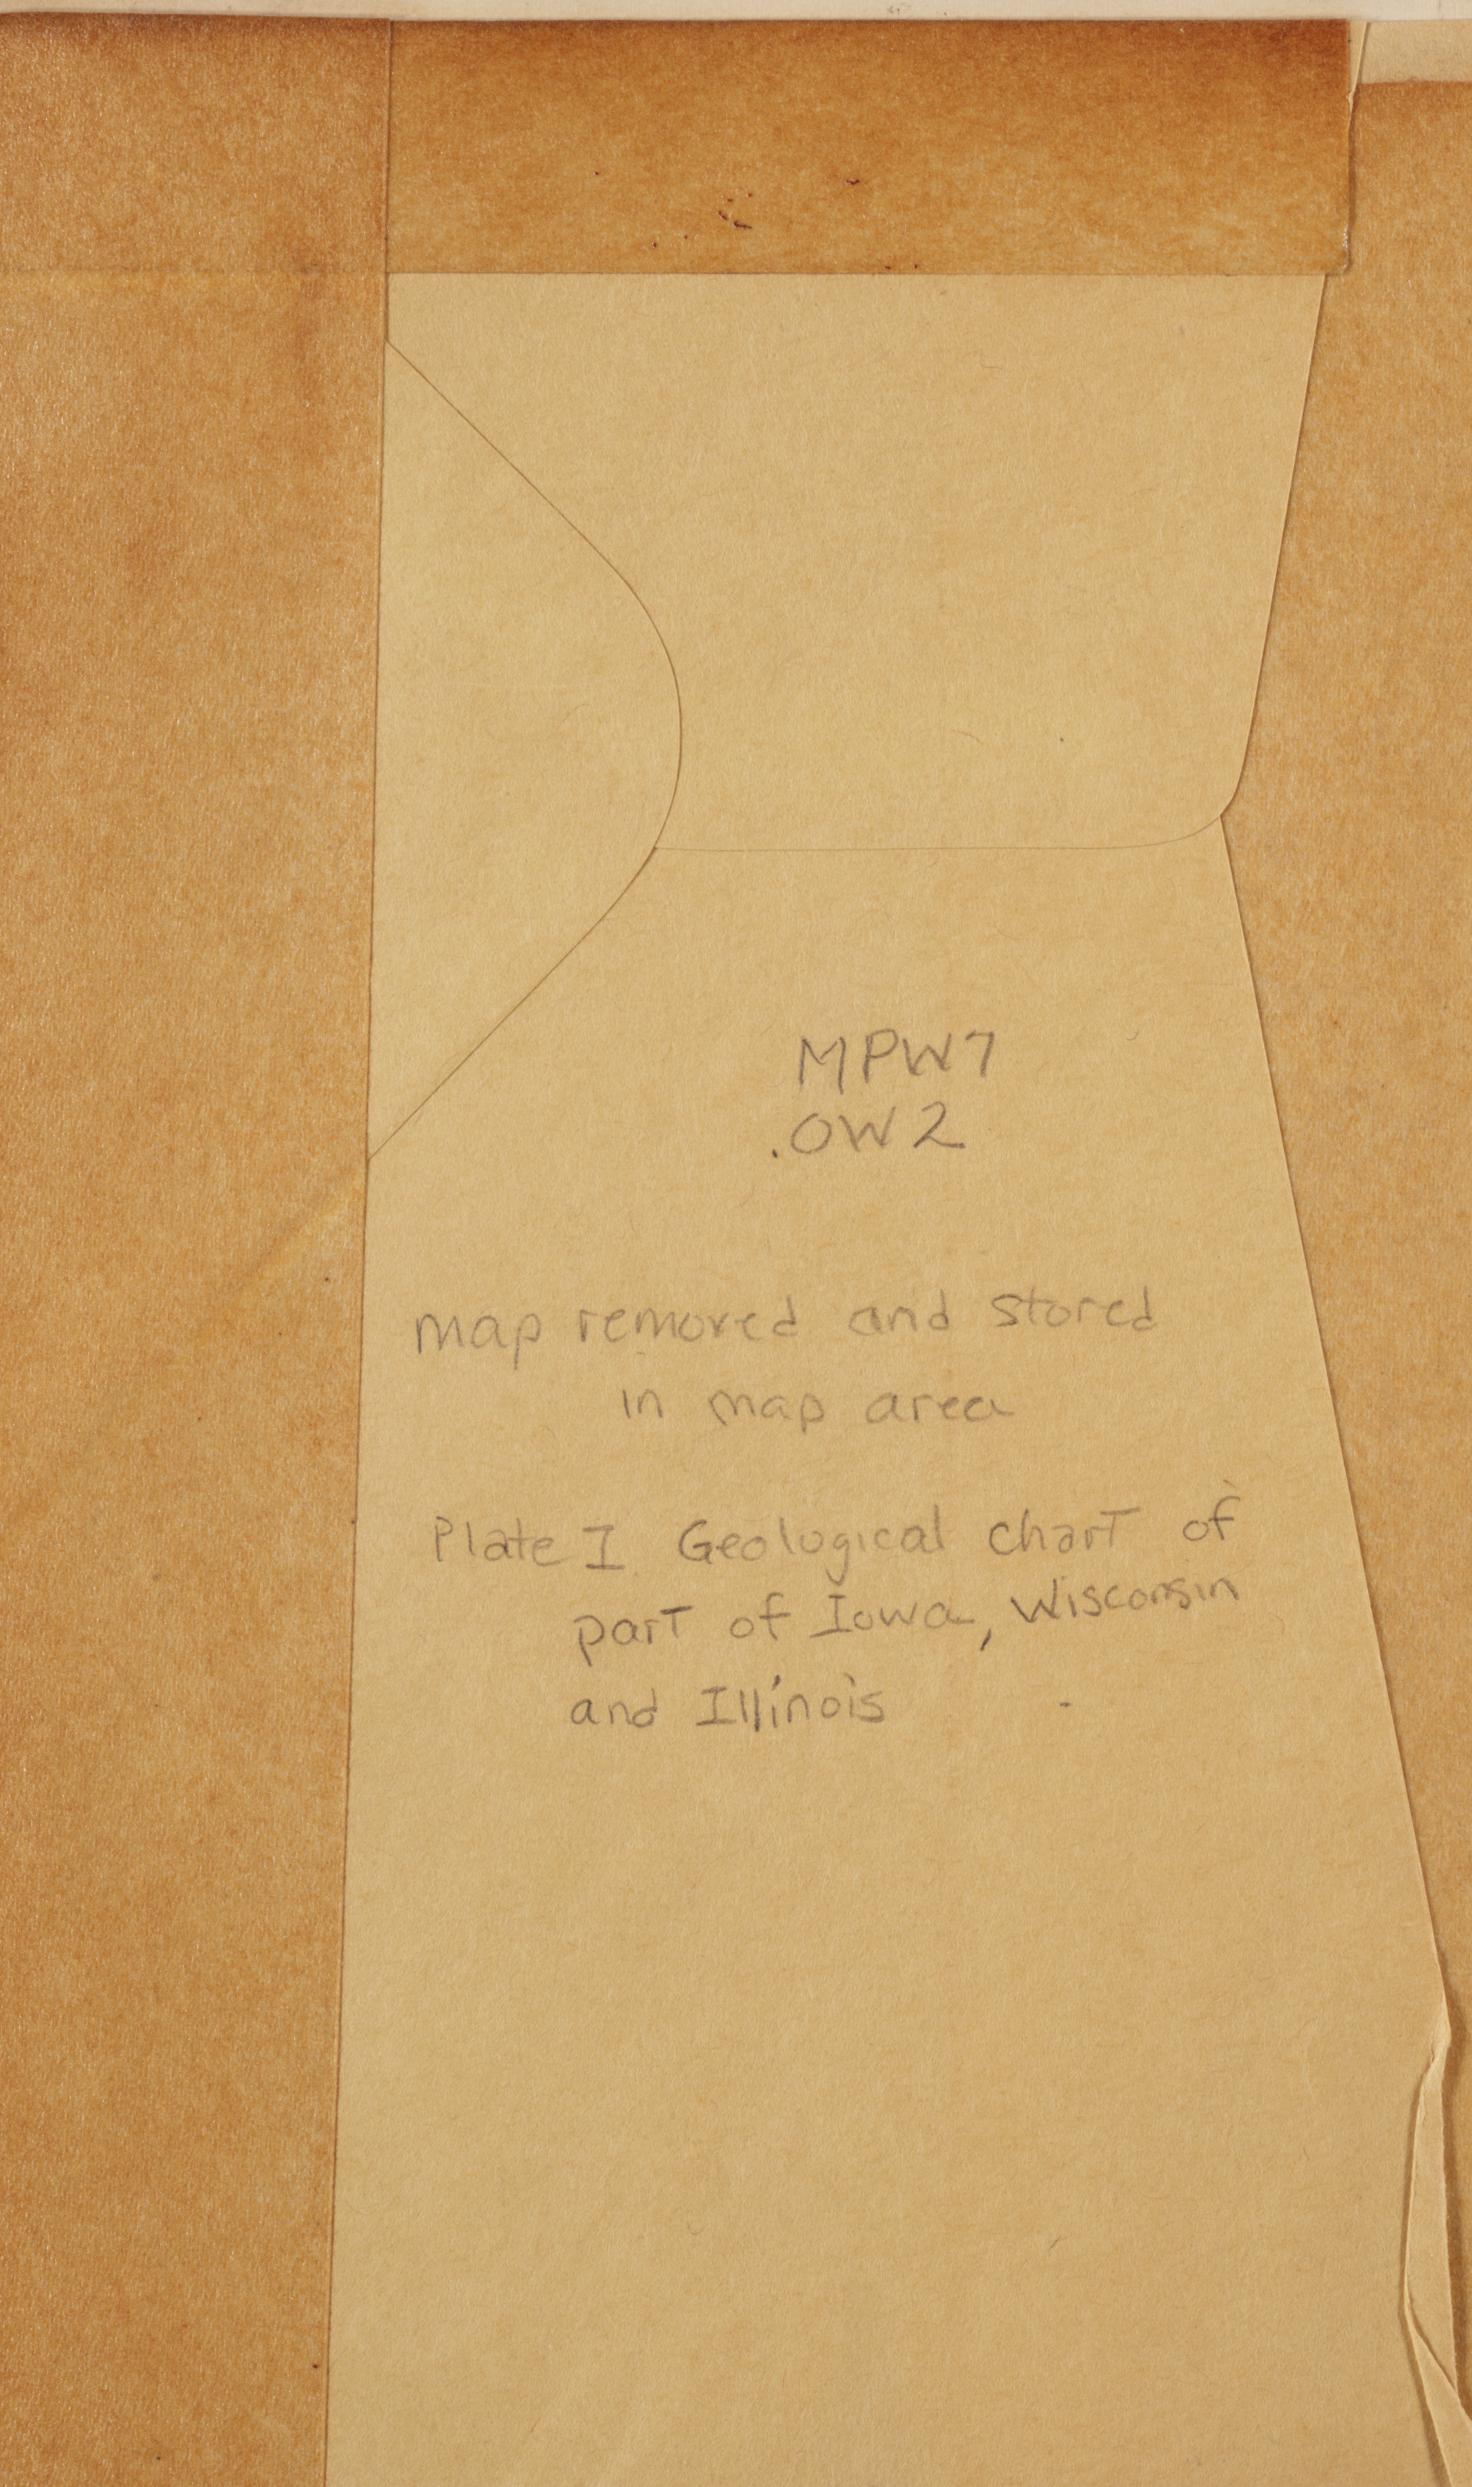 MPW7
.OW2
map removed and stored
in map area
Plate I Geological chart of
part of Iowa, Wisconsin
and Illinois